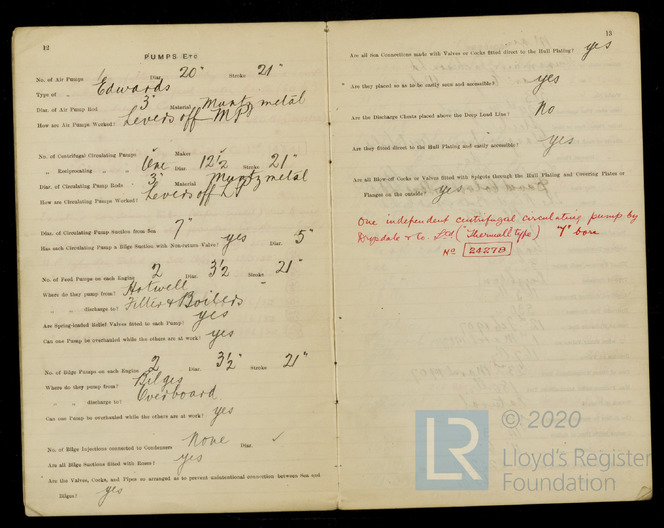 12
PUMPS ETC
No. of Air Pumps 1 Diar. 20" Stroke 21"
Type of " Edwards
Diar. of Air Pump Rod 3" Material Muntz metal
How are Air Pumps Worked? Levers off MP
No. of Centrifugal Circulating Pumps Maker
" Reciprocating " " One Diar. 12½ Stroke 21"
Diar. of Circulating Pump Rods 3" Material Muntz metal
How are Circulating Pumps Worked? Levers off
Diar. of Circulating Pump Suction from Sea 7"
Has each Circulating Pump a Bilge Suction with Non-return Valve? yes Diar. 5"
No. of Feed Pumps on each Engine 2 Diar. 3½ Stroke 21"
Where do they pump from? Hotwell
" " discharge to? Filter & Boilers
Are Spring-loaded Relief Valves fitted to each Pump? yes
Can one Pump be overhauled while the others are at work? yes
No. of Bilge Pumps on each Engine 2 Diar. 3½" Stroke 21"
Where do they pump from? Bilges
" " discharge to? Overboard
Can one Pump be overhauled while the others are at work? yes
No. of Bilge Injections connected to Condensers None Diar. ✓
Are all Bilge Suctions fitted with Roses? yes
Are the Valves, Cocks, and Pipes so arranged as to prevent unintentional connection between Sea and
Bilges? yes
13
Are all Sea Connections made with Valves or Cocks fitted direct to the Hull Plating? yes
Are they placed so as to be easily seen and accessible? yes
Are the Discharge Chests placed above the Deep Load Line? No
Are they fitted direct to the Hull Plating and easily accessible? yes
Are all Blow-off Cocks or Valves fitted with Spigots through the Hull Plating and Covering Plates or
Flanges on the outside? yes
One independent centrifugal circulating pump by
Drysdale & Co. Ltd ("Thermall type) 7" bore
No 24278
LR
© 2020
Lloyd's Register
Foundation